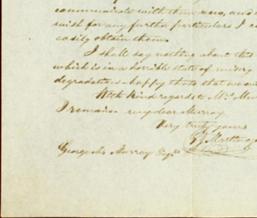 communicate with them now, and
wish for any further particulars I can
easily obtain them.
I shall say nothing about this
which is in a horrible state of misery
degradation - happy that we are
With kind regards to Mrs Mu
I remain my dear Murray
Very truly yours
Matthew
George Murray Esqr